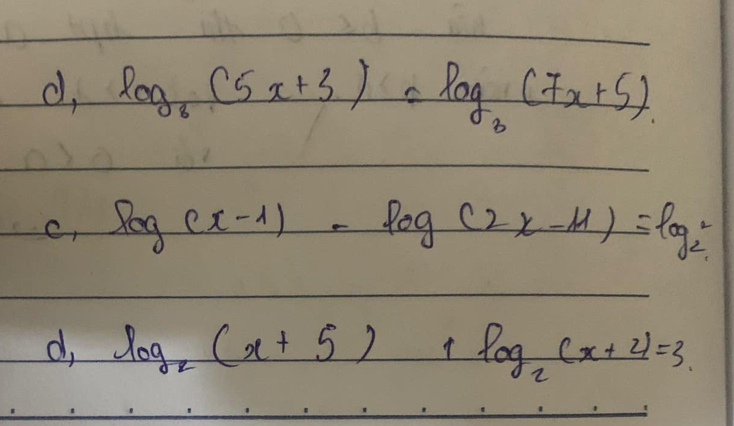 d, log₃ (5x+3) = log₃ (7x+5).
c, log (x-1) - log (2x-11) = log₂²
d, log₂ (x+5) + log₂ (x+2)=3.